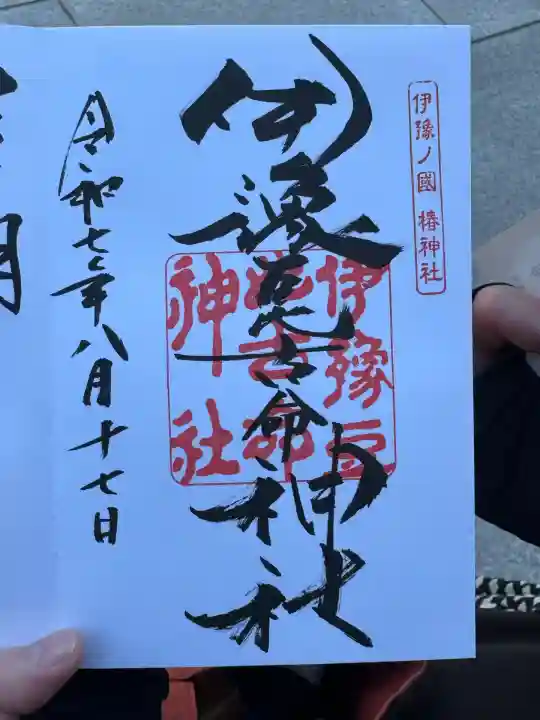 伊豫ノ國 椿神社
伊豫豆比古命神社
伊豫豆
比古命
神社
令和七年八月十七日
月